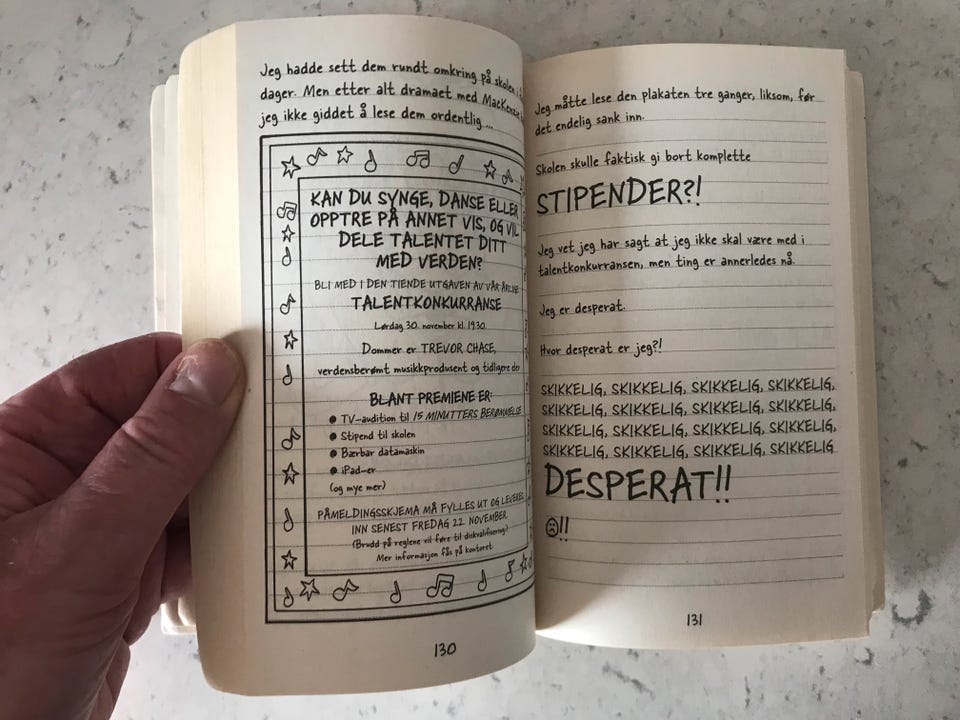 Jeg hadde sett dem rundt omkring på skolen i
dager. Men etter alt dramaet med MacKenzie
jeg ikke giddet å lese dem ordentlig ...
KAN DU SYNGE, DANSE ELLER
OPPTRE PÅ ANNET VIS, OG VIL
DELE TALENTET DITT
MED VERDEN?
BLI MED I DEN TIENDE UTGAVEN AV VÅR ÅRLIGE
TALENTKONKURRANSE
Lørdag 30. november kl. 19.30.
Dommer er TREVOR CHASE,
verdensberømt musikkprodusent og tidligere
BLANT PREMIENE ER:
● TV-audition til 15 MINUTTERS BERØMMELSE
● Stipend til skolen
● Bærbar datamaskin
● iPad-er
(og mye mer)
PÅMELDINGSSKJEMA MÅ FYLLES UT OG LEVERES
INN SENEST FREDAG 22. NOVEMBER.
(Brudd på reglene vil føre til diskvalifisering.)
Mer informasjon fås på kontoret.
130
Jeg måtte lese den plakaten tre ganger, liksom, før
det endelig sank inn.
Skolen skulle faktisk gi bort komplette
STIPENDER?!
Jeg vet jeg har sagt at jeg ikke skal være med i
talentkonkurransen, men ting er annerledes nå.
Jeg er desperat.
Hvor desperat er jeg?!
SKIKKELIG, SKIKKELIG, SKIKKELIG, SKIKKELIG,
SKIKKELIG, SKIKKELIG, SKIKKELIG, SKIKKELIG,
SKIKKELIG, SKIKKELIG, SKIKKELIG, SKIKKELIG,
SKIKKELIG, SKIKKELIG, SKIKKELIG, SKIKKELIG
DESPERAT!!
☹!!
131